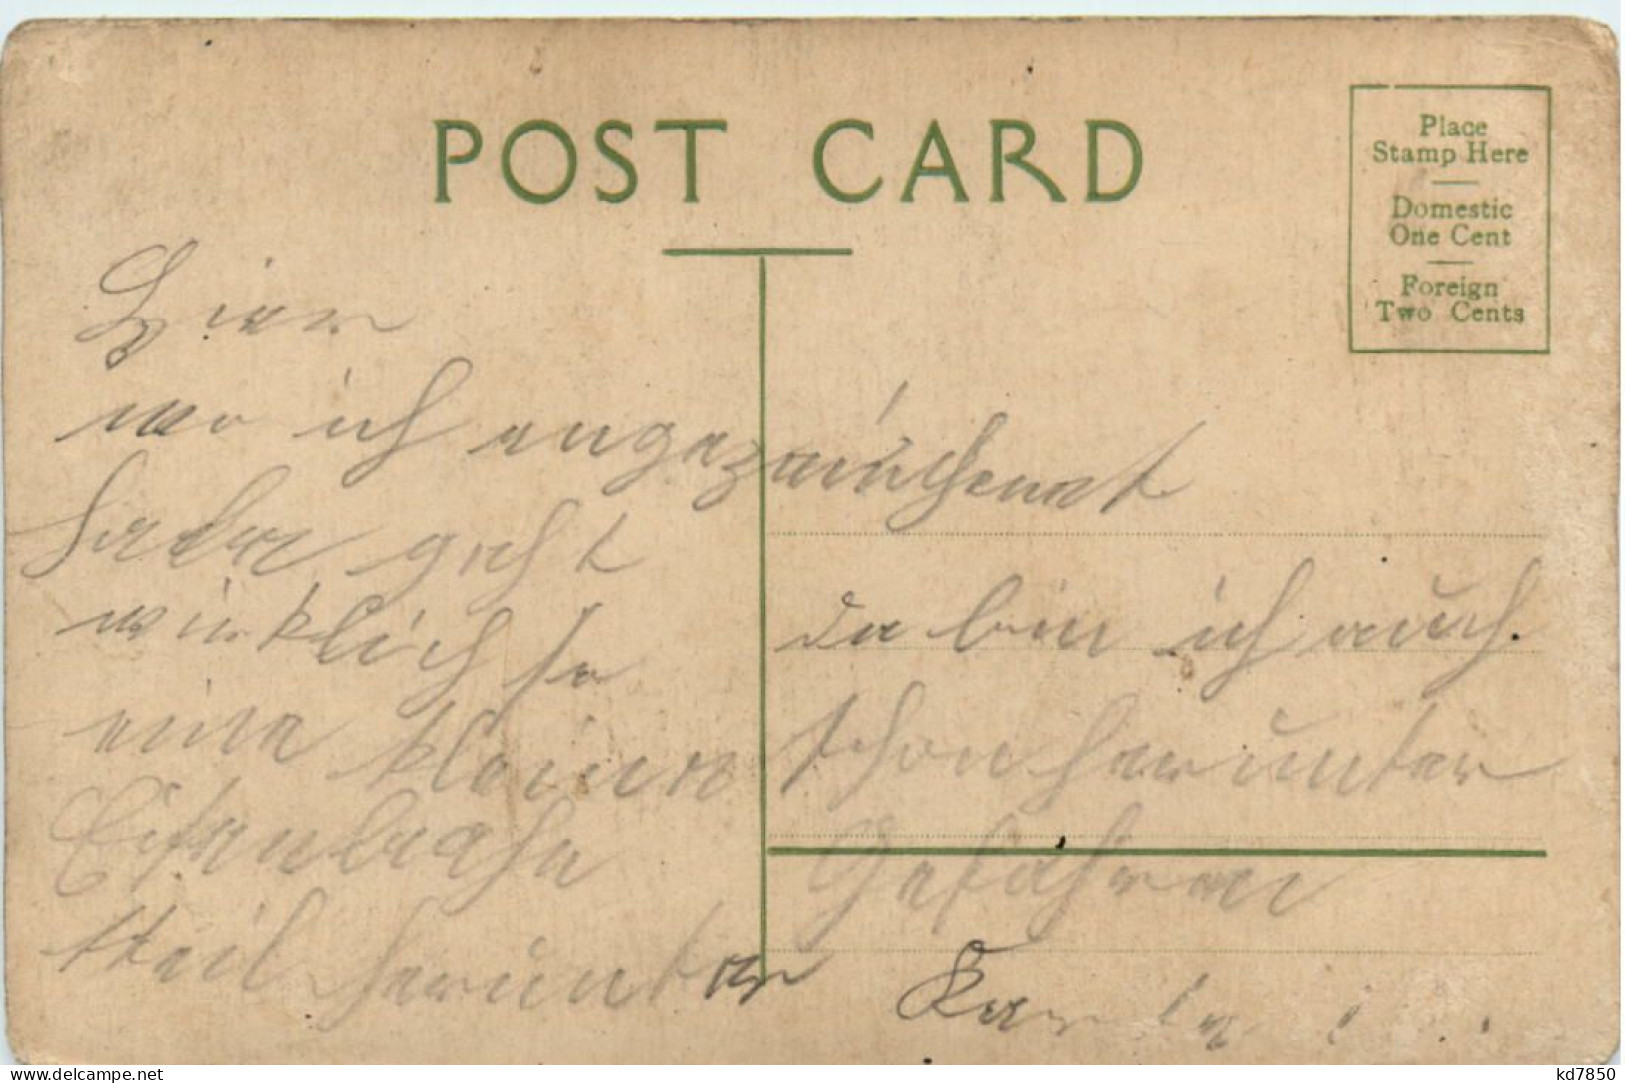 POST CARD
Place
Stamp Here
Domestic
One Cent
Foreign
Two Cents
Hier
wo ich angezeichnet
habe geht
wirklich so
eine kleine
Eisenbahn
steil herunter
da bin ich auch
schon herunter
Gefahren
www.delcampe.net
kd7850